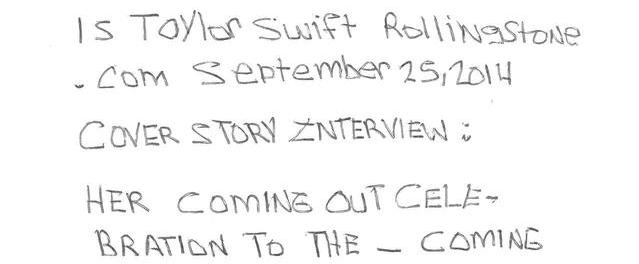 IS TAYlor Swift RollingStone
.com September 25, 2014
COVER STORY INTERVIEW:
HER COMING OUT CELE-
BRATION TO THE - COMING